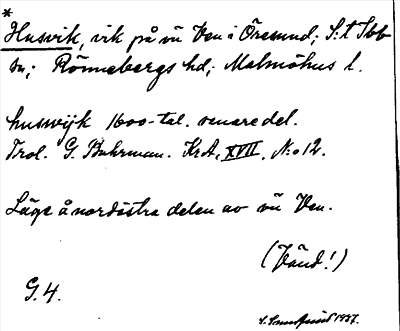 *
Husvik, vik på ön Ven i Öresund; S:t Ibb
sn; Rönnebergs hd; Malmöhus l.
huswijk 1600-tal. senare del.
Trol. G. Buhrman. KrA, XVII, N:o 12.
Läge å nordöstra delen av ön Ven.
(Vänd!)
G. 4.
1937.